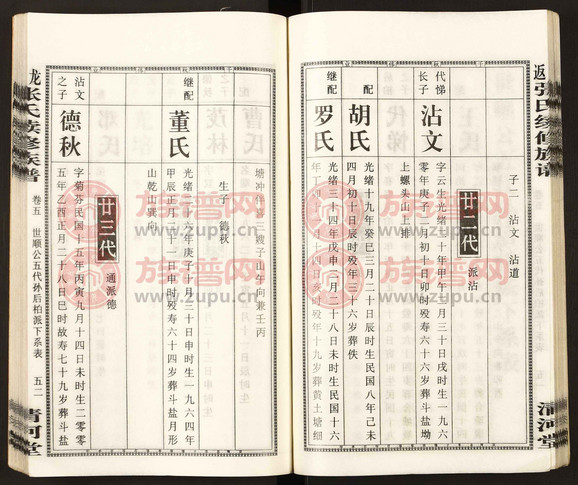 子二 沾文 沾道
廿二代
派沾
代悌
长子
沾文
字云生光绪二十年甲午三月三十日戌时生一九六
零年庚子二月初十日卯时殁寿六十七岁葬斗盐坳
上螺头山上排
配
胡氏
光绪十九年癸巳三月二十日辰时生民国八年己未
四月初十日辰时殁年三十六岁葬佚
继配
罗氏
光绪三十四年戊申二月 时生民国十六
年丁 十四日亥时殁年十九岁葬黄土塘细
塘冲伴喜二嫂子山午向兼壬丙
生子 德秋
继配
董氏
光绪二十六年庚子十月三十日申时生一九六四年
甲辰正月二十一日申时殁寿六十四岁葬斗盐月形
山乾山巽向
廿三代
通派德
沾文
之子
德秋
字菊芬民国十五年丙寅九月十四日未时生二零零
五年乙酉正月二十八日巳时故寿七十九岁葬斗盐
张氏续修族谱
卷五 世顺公五代孙后柏派下系表
五二
清河堂
张氏续修族谱
清河堂
族谱网
www.zupu.cn
族谱网
www.zupu.cn